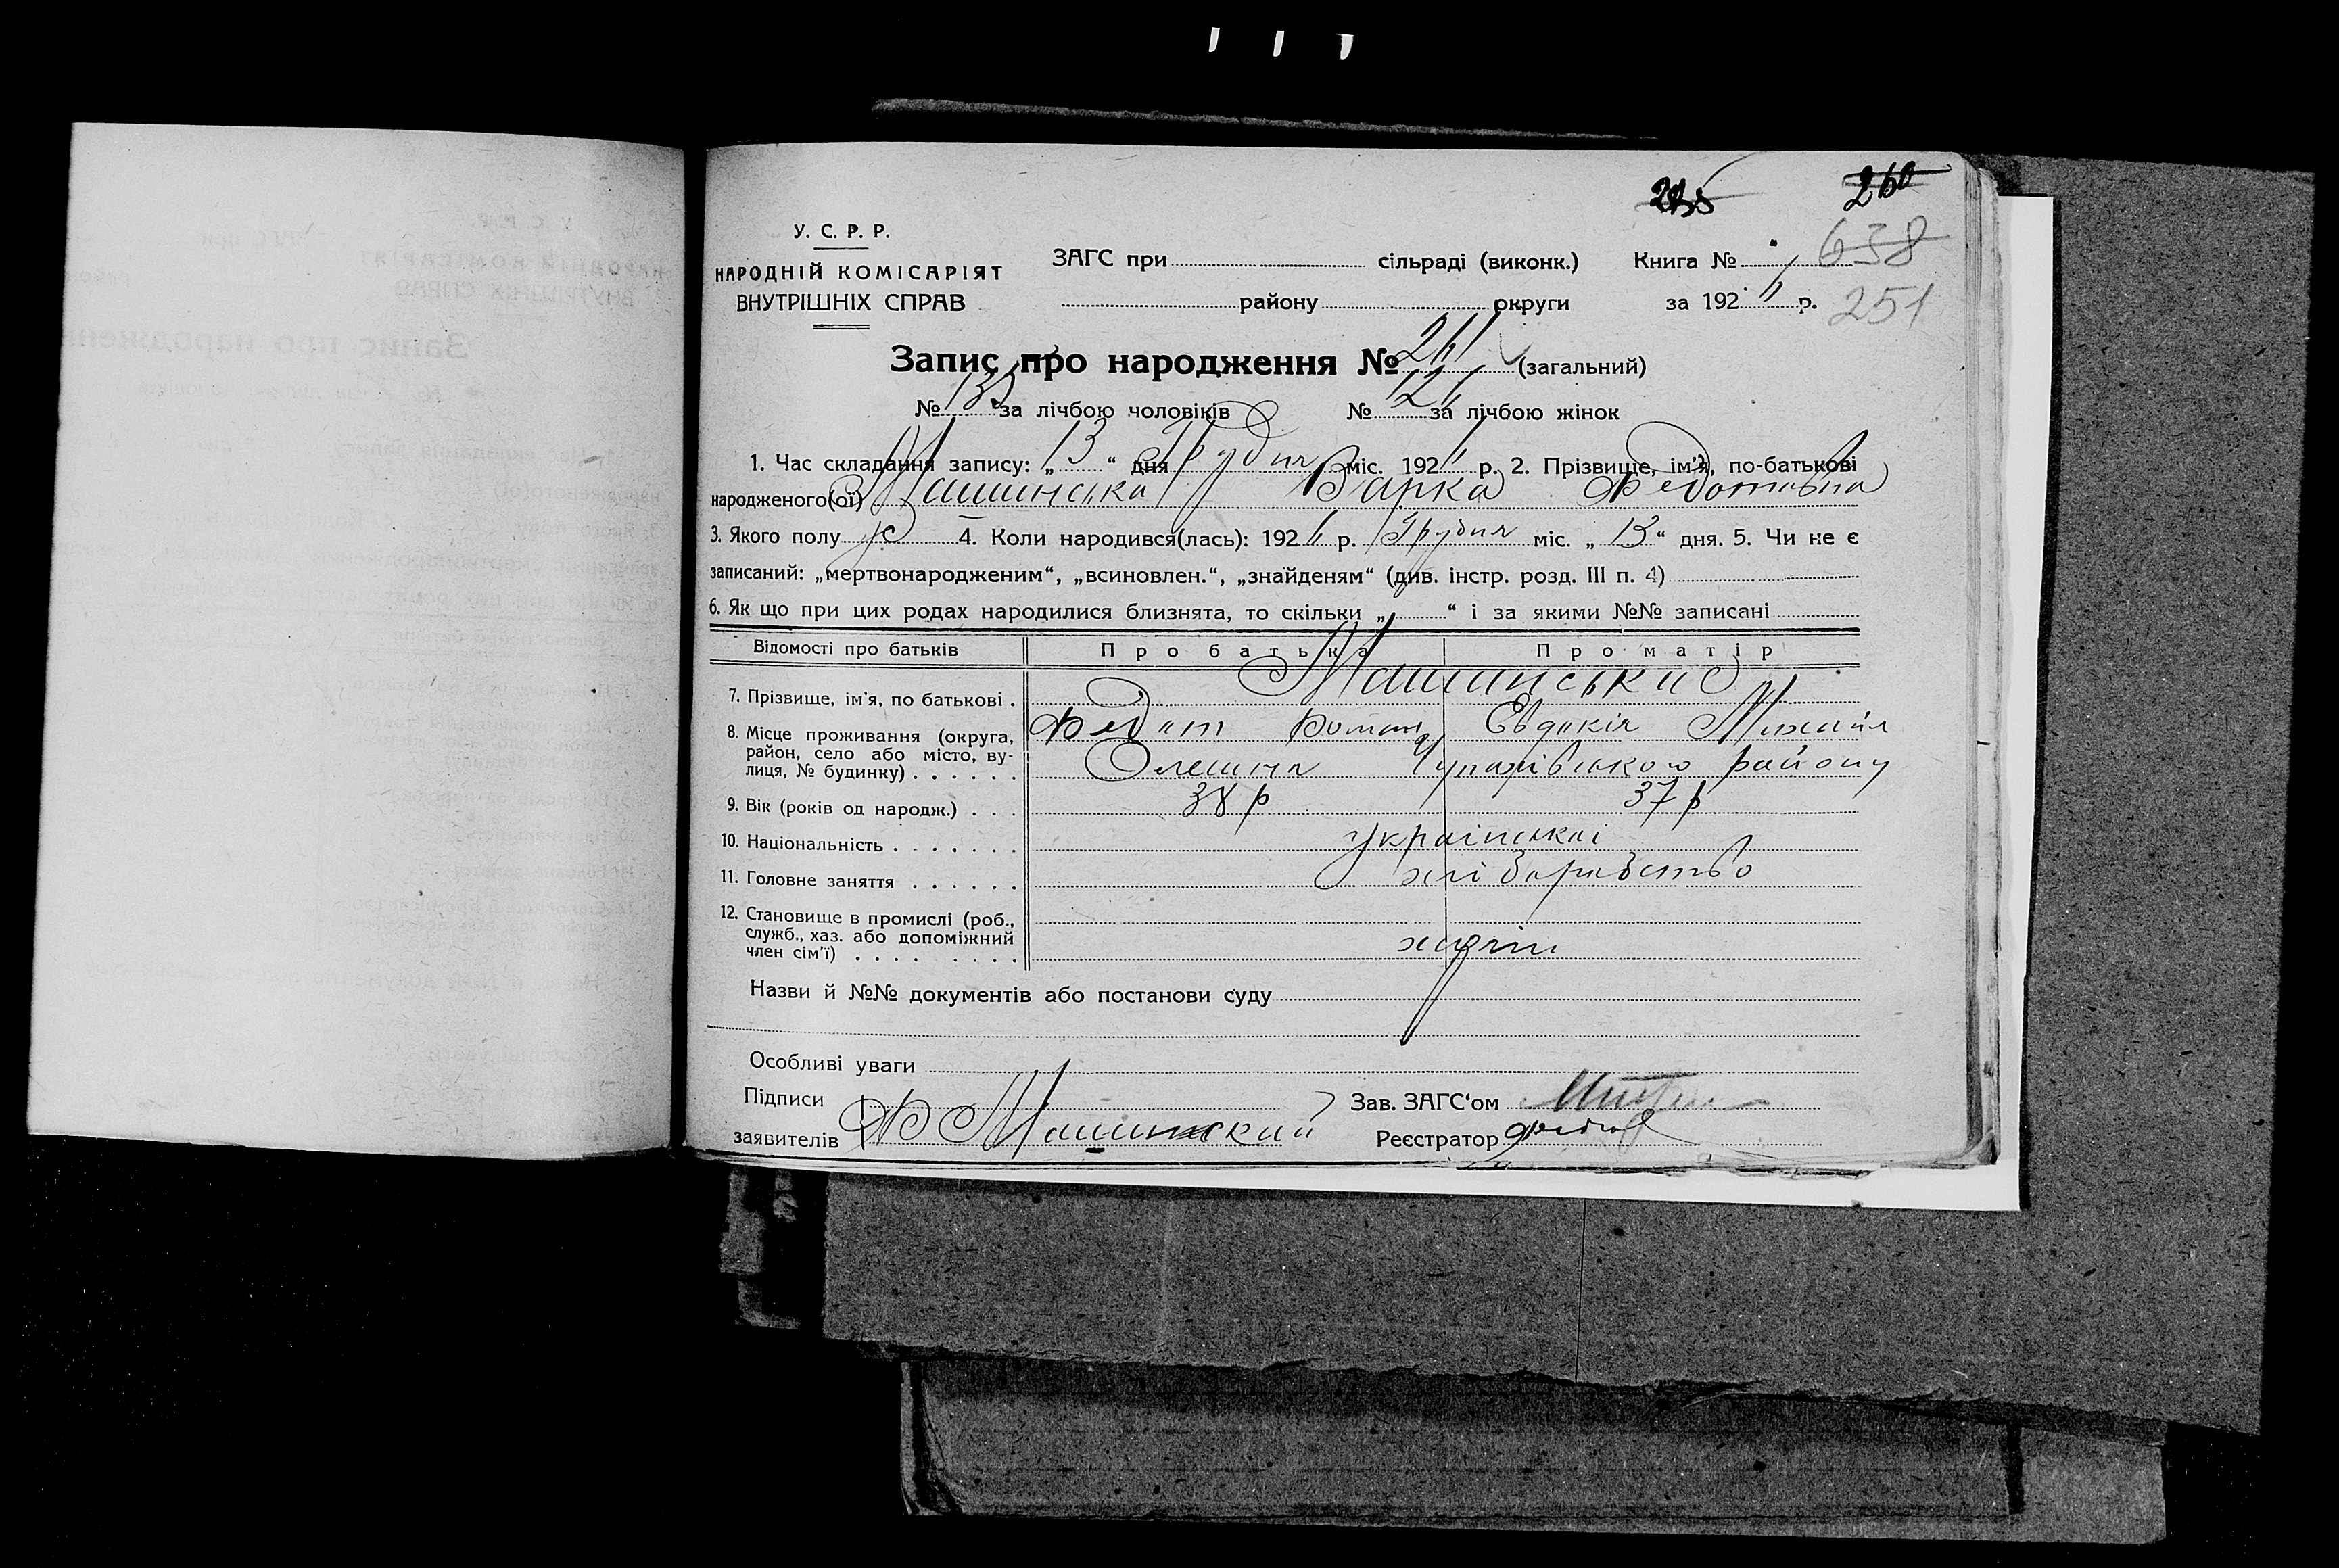 260
638
У. С. Р. Р.
НАРОДНІЙ КОМІСАРІЯТ
ВНУТРІШНІХ СПРАВ
ЗАГС при сільраді (виконк.) Книга №
району округи за 192 р. 251
Запис про народження № 261 (загальний)
№ за лічбою чоловіків № за лічбою жінок
1. Час складання запису: „13“ дня Грудня міс. 192 р. 2. Прізвище, ім'я, по-батькові
народженого(ої) Машинська Варка Федотовна
3. Якого полу ж 4. Коли народився(лась): 192 р. Грудня міс. „13“ дня. 5. Чи не є
записаний: „мертвонародженим“, „всиновлен.“, „знайденям“ (див. інстр. розд. III п. 4)
6. Як що при цих родах народилися близнята, то скільки „ “ і за якими №№ записані
Відомості про батьків Про батька Про матір
7. Прізвище, ім'я, по батькові . Машинський
Федот Роман Евдокія Михайл
8. Місце проживання (округа, район, село або місто, вулиця, № будинку) . . . . . . Олешня Чупахівського району
9. Вік (років од народж.) . . . 38 р 37 р
10. Національність . . . . . . . українські
11. Головне заняття . . . . . . хліборобство
12. Становище в промислі (роб., служб., хаз. або допоміжний член сім'ї) . . . . . . . . хазяін
Назви й №№ документів або постанови суду
Особливі уваги
Підписи Зав. ЗАГС‘ом
заявителів Ф Машинский Реєстратор